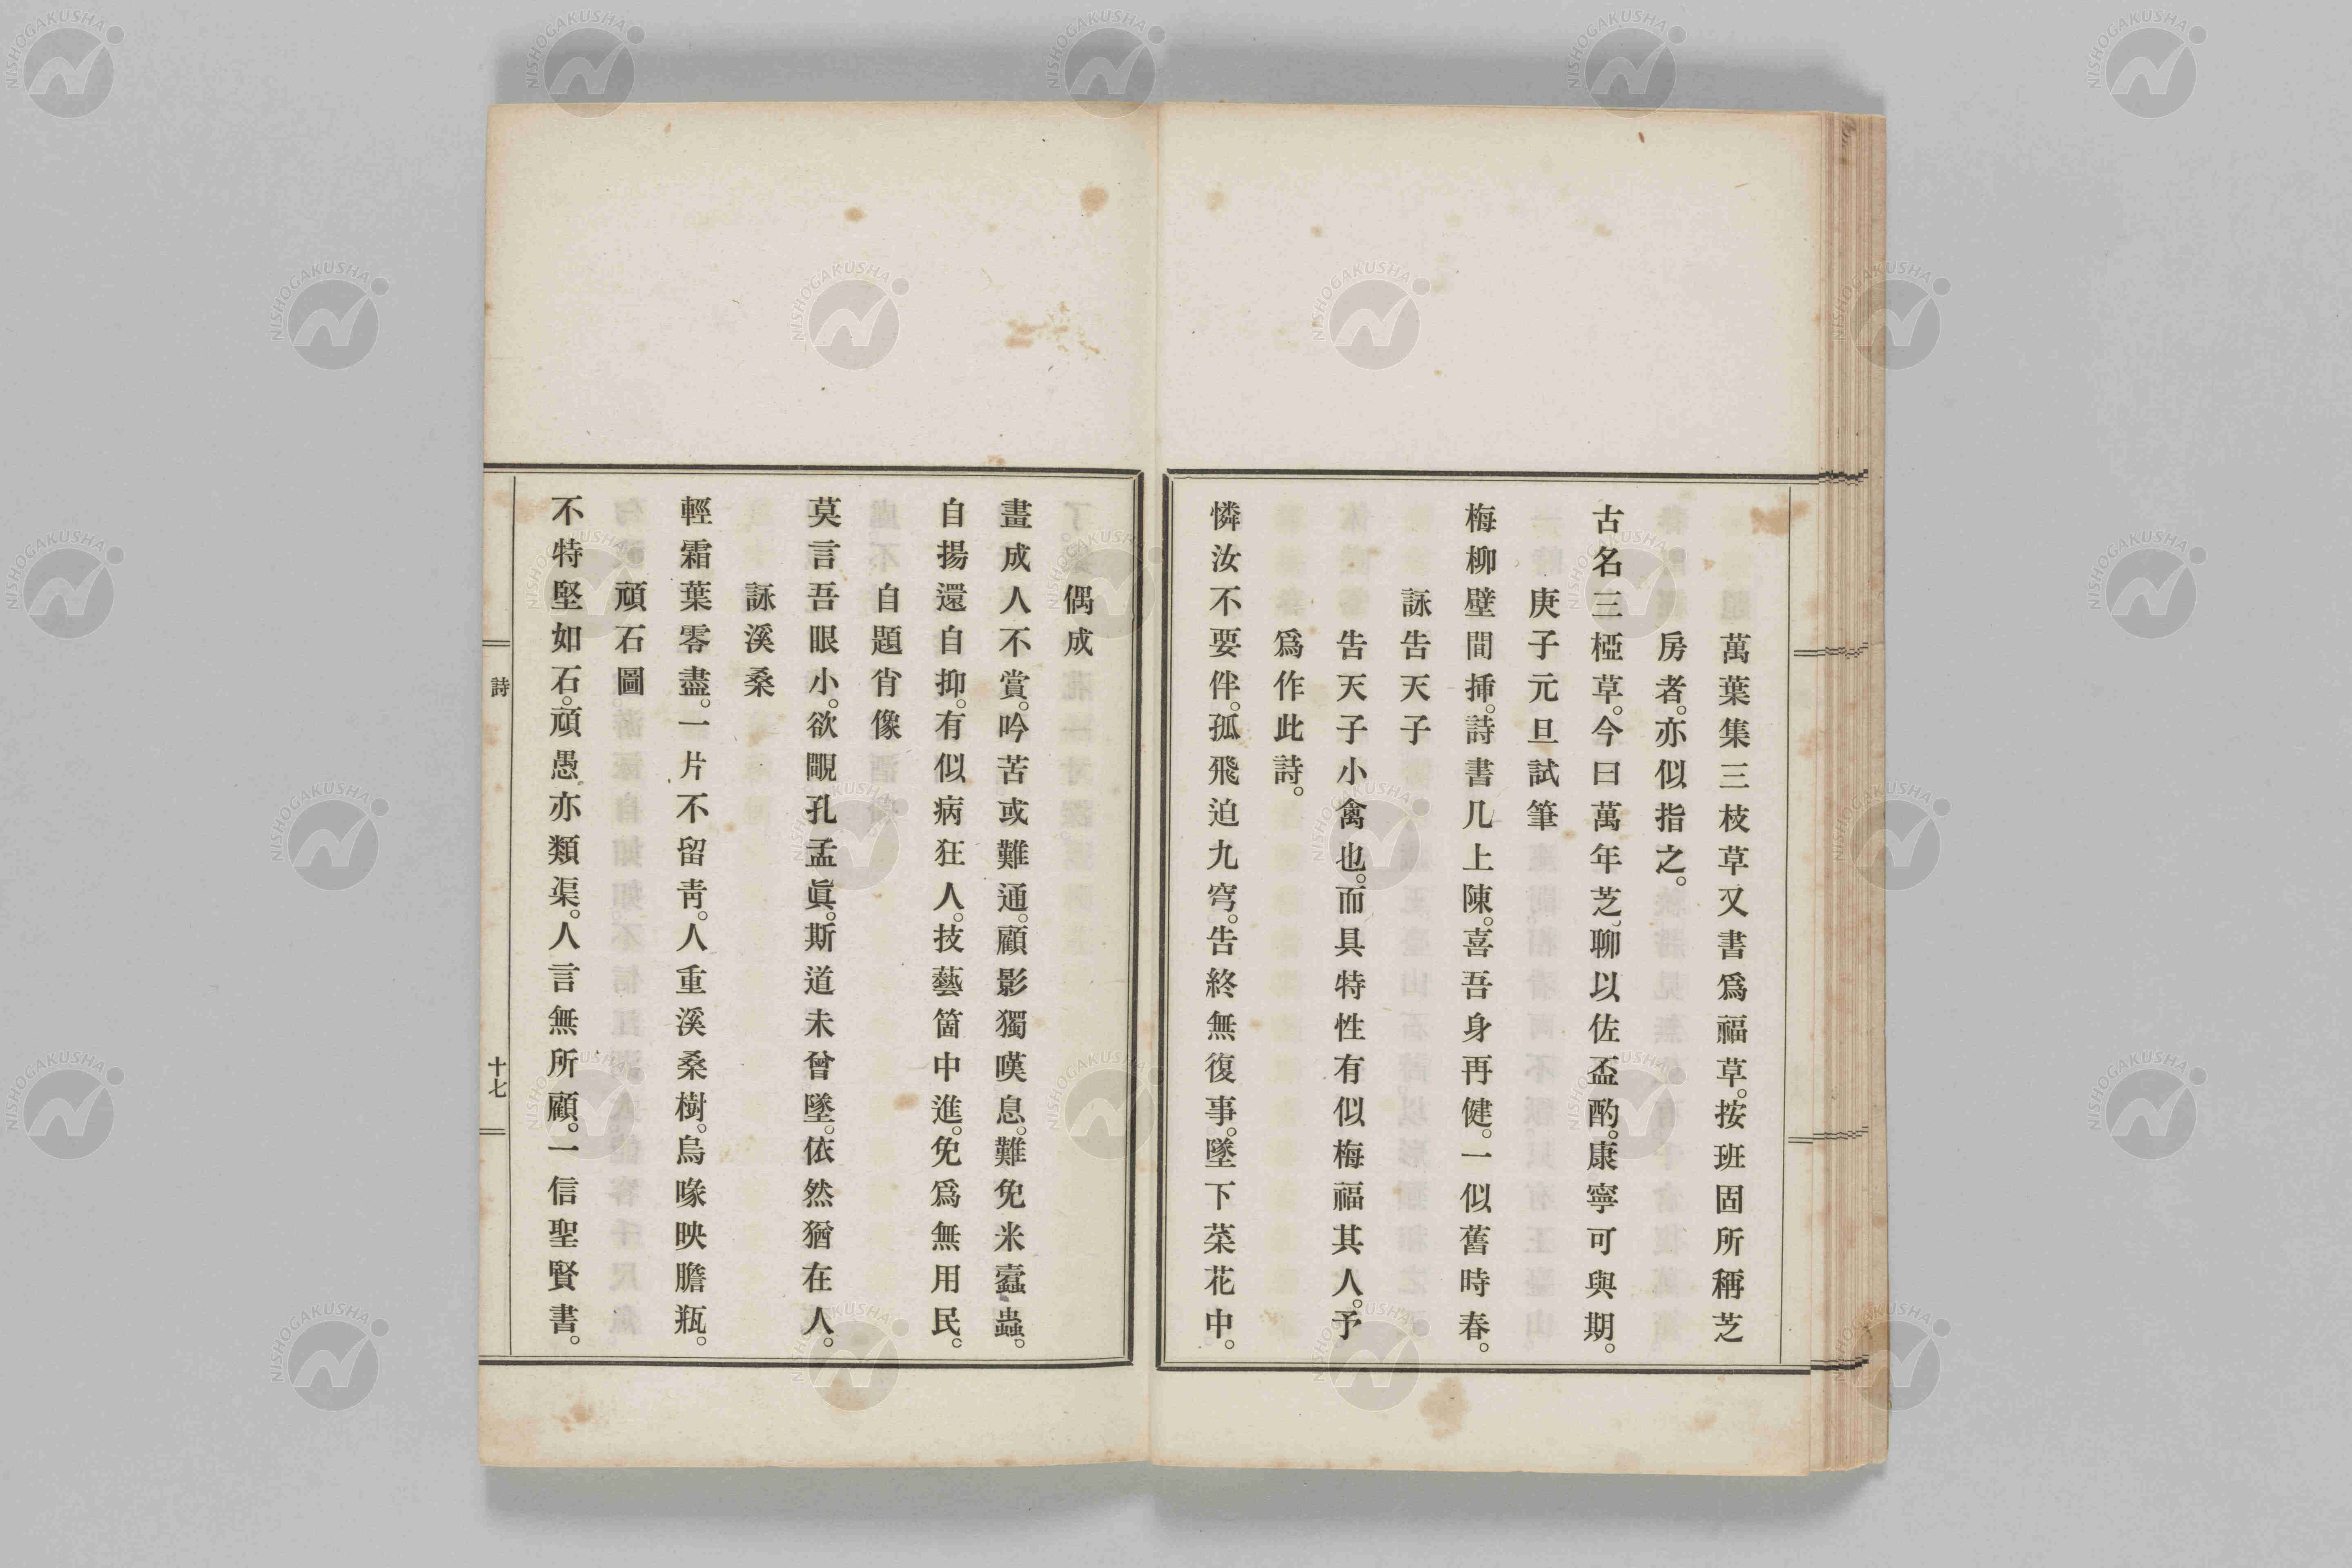 萬葉集三枝草又書爲福草。按班固所稱芝
房者。亦似指之。
古名三椏草。今曰萬年芝。聊以佐盃酌。康寧可與期。
庚子元旦試筆
梅柳壁間揷。詩書几上陳。喜吾身再健。一似舊時春。
詠告天子
告天子小禽也。而具特性有似梅福其人。予
爲作此詩。
憐汝不要伴。孤飛迫九穹。告終無復事。墜下菜花中。
偶成
畫成人不賞。吟苦或難通。顧影獨嘆息。難免米蠧蟲。
自揚還自抑。有似病狂人。技藝箇中進。免爲無用民。
自題肖像
莫言吾眼小。欲覸孔孟眞。斯道未曾墜。依然猶在人。
詠溪桑
輕霜葉零盡。一片不留靑。人重溪桑樹。烏喙映膽瓶。
頑石圖
不特堅如石。頑愚亦類渠。人言無所顧。一信聖賢書。
詩
十七
NISHOGAKUSHA